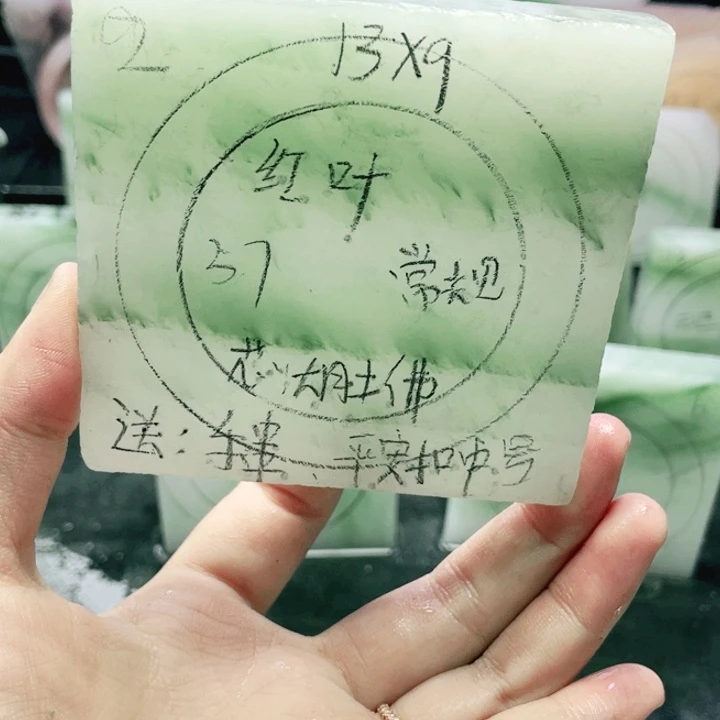 2 13X9
红叶
57 常规
芯:大肚佛
送:手串、平安扣中号